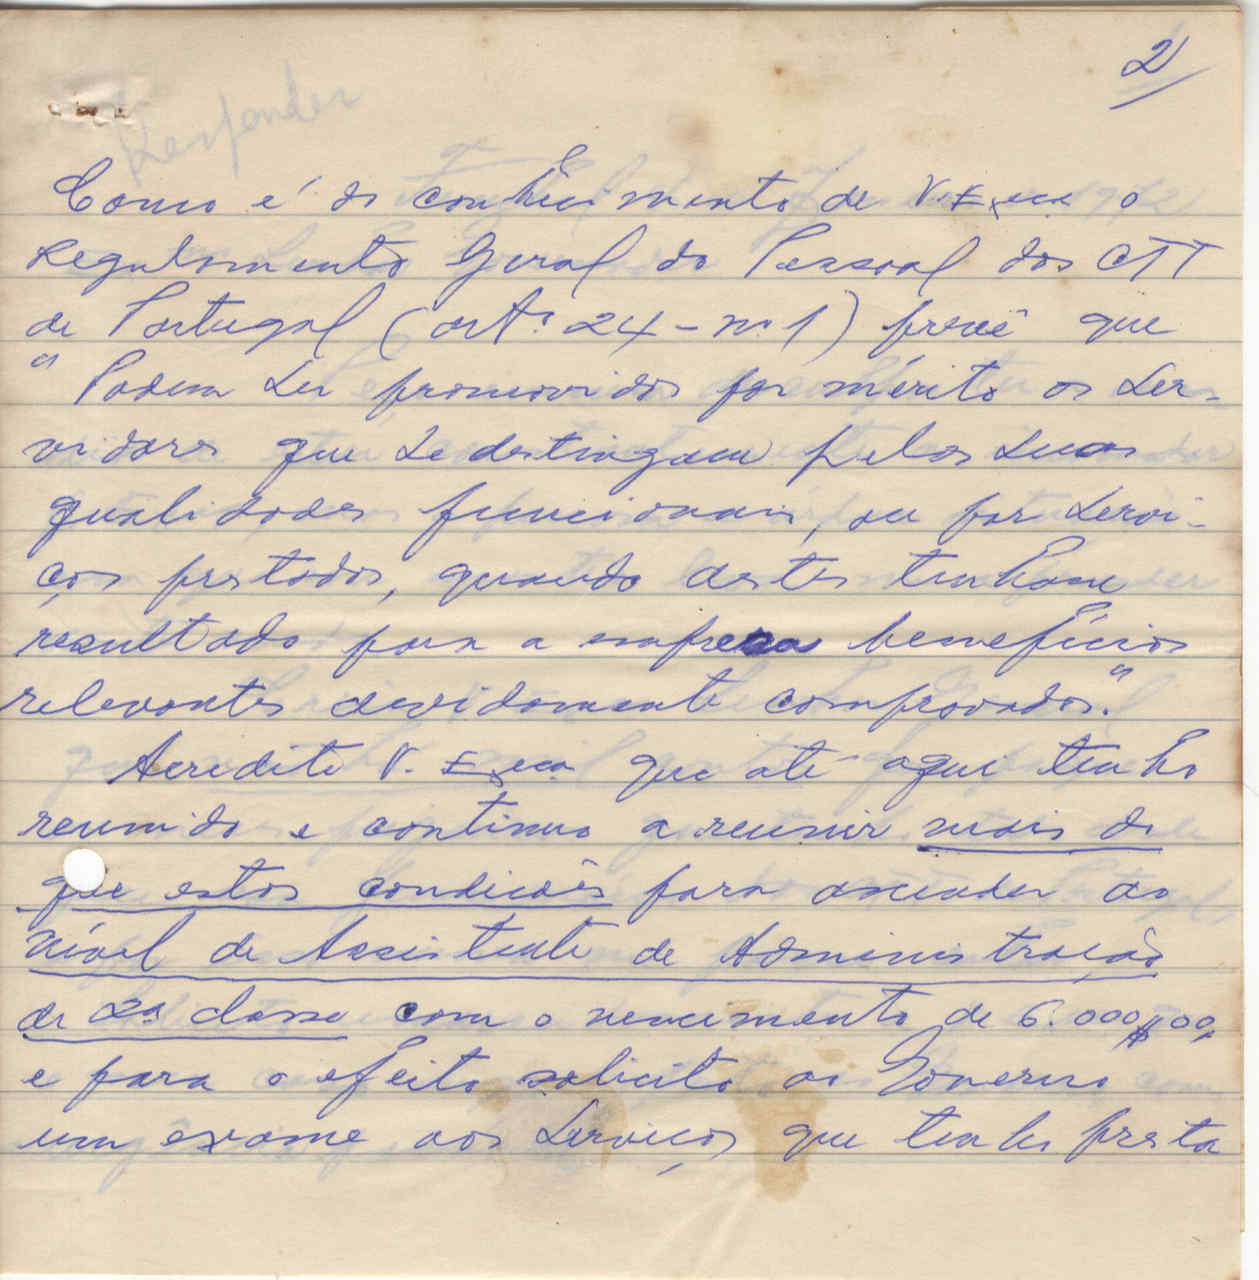 2
Responder
Como é do conhecimento de V. Exca o
Regulamento Geral do Pessoal dos CTT
de Portugal (artº 24 - nº 1) prevê que
"Podem ser promovidos por mérito os ser-
vidores que se destingam pelas suas
qualidades funcionais, ou por servi-
ços prestados, quando destes tenham
resultado para a empresa benefícios
relevantes devidamente comprovados."
Acredite V. Exca que até aqui tenho
reunido e continuo a reunir mais do
que estas condições para ascender ao
nível de Assistente de Administração
de 2ª classe com o vencimento de 6.000$00,
e para o efeito solicito ao Governo
um exame aos serviços que tenho presta